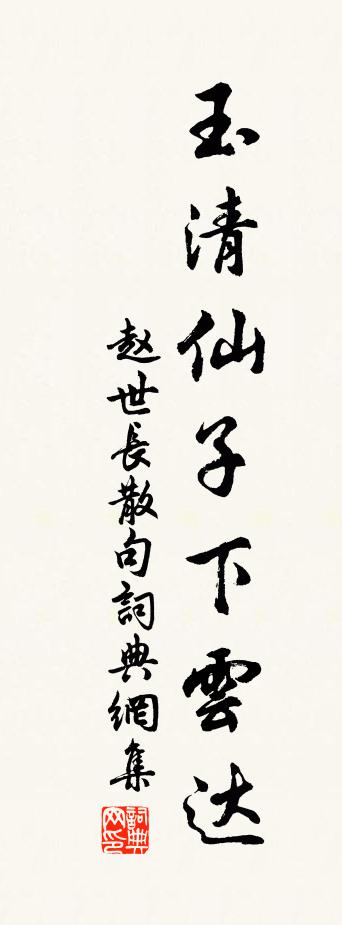 玉清仙子下雲达
赵世長散句詞典網集
詞典网印